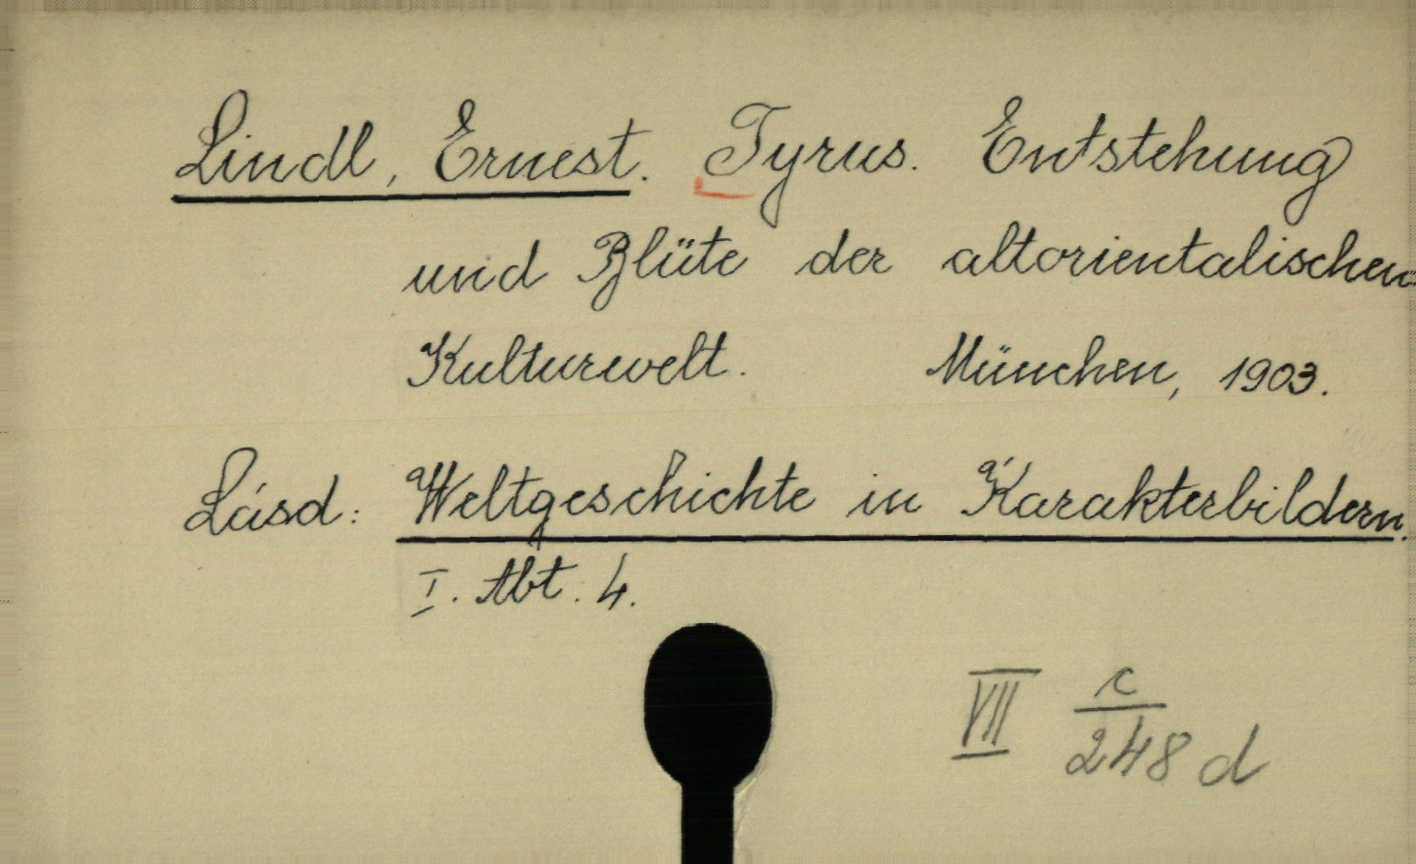 Lindl, Ernest. Tyrus. Entstehung
und Blüte der altorientalischen
Kulturwelt. München, 1903.
Lásd: Weltgeschichte in Karakterbildern.
I. Abt. 4.
VII c/248 d